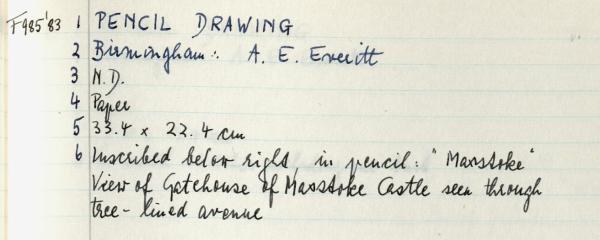 F985'83 1 PENCIL DRAWING
2 Birmingham: A. E. Everitt
3 N.D.
4 Paper
5 33.4 x 22.4 cm
6 Inscribed below right, in pencil: "Maxstoke"
View of Gatehouse of Maxstoke Castle seen through
tree-lined avenue